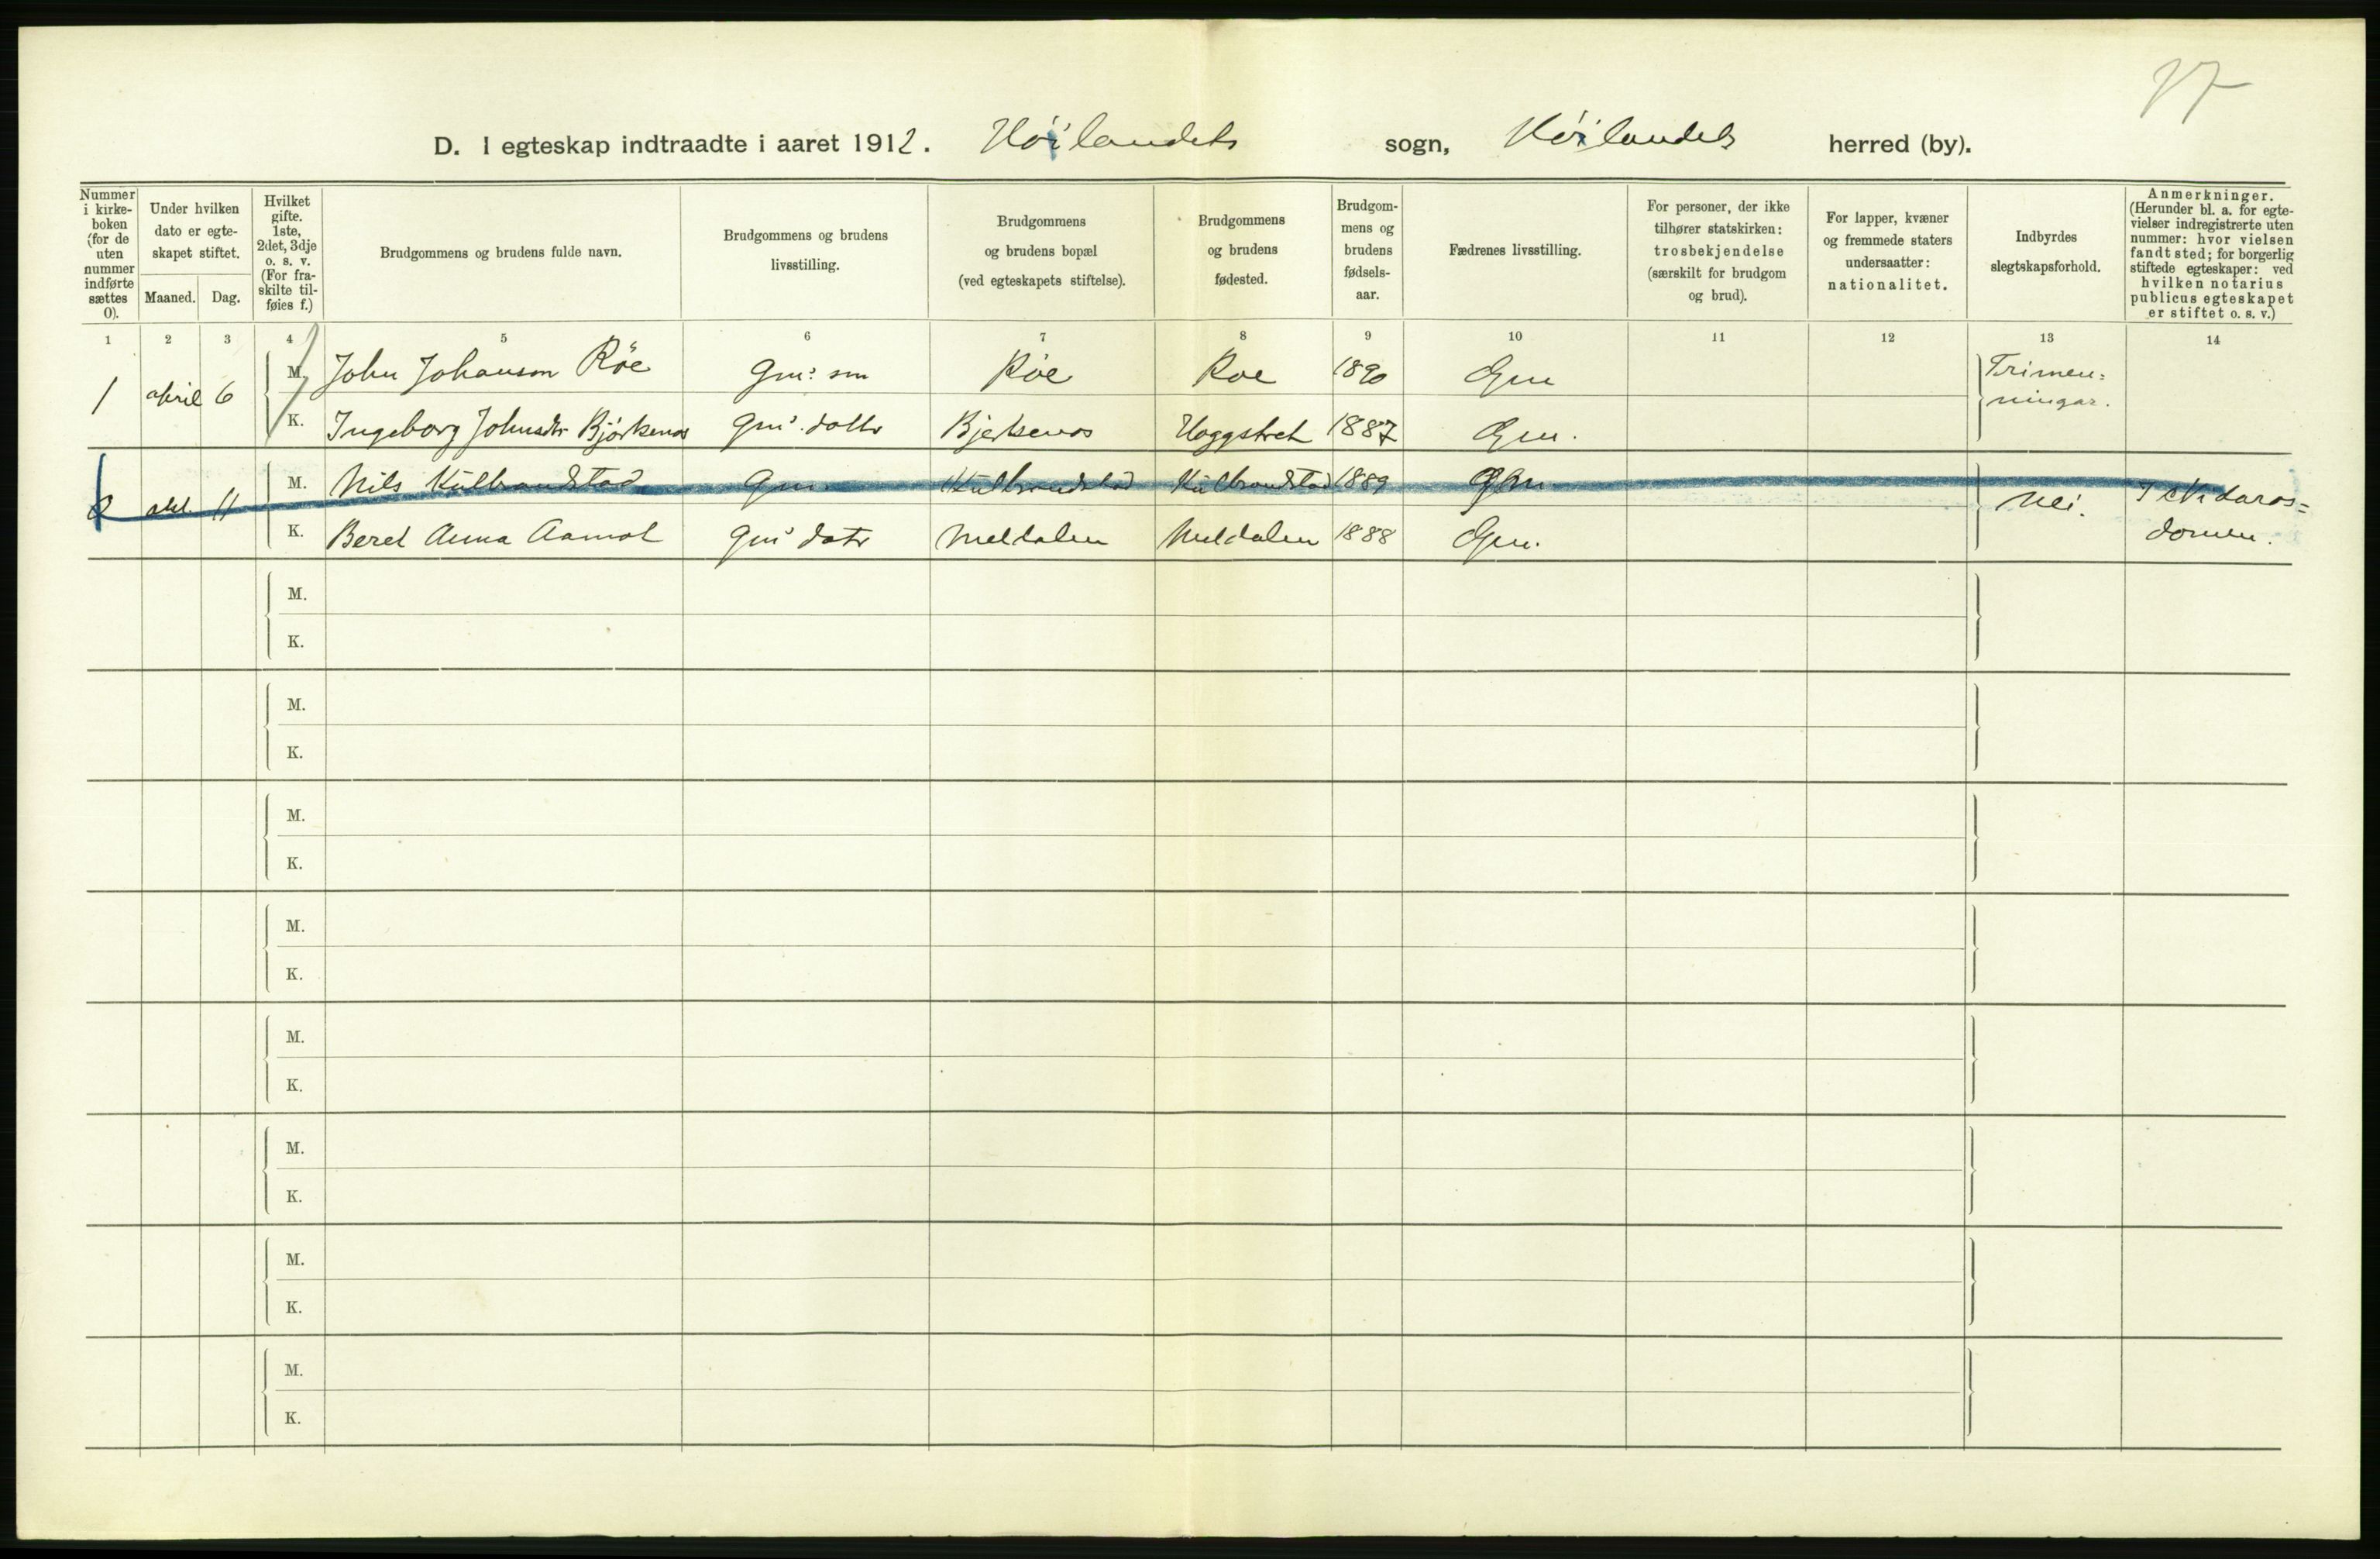 77
D. I egteskap indtraadte i aaret 1912. Höilandets sogn, Höilandets herred (by).
Nummer i kirke-boken (for de uten nummer indførte sættes 0).
Under hvilken dato er egte-skapet stiftet.
Maaned. Dag.
Hvilket gifte. 1ste, 2det, 3dje o. s. v. (For fra-skilte til-føies f.)
Brudgommens og brudens fulde navn.
Brudgommens og brudens livsstilling.
Brudgommens og brudens bopæl (ved egteskapets stiftelse).
Brudgommens og brudens fødested.
Brudgom-mens og brudens fødsels-aar.
Fædrenes livsstilling.
For personer, der ikke tilhører statskirken: trosbekjendelse (særskilt for brudgom og brud).
For lapper, kvæner og fremmede staters undersaatter: nationalitet.
Indbyrdes slegtskapsforhold.
Anmerkninger. (Herunder bl. a. for egte-vielser indregistrerte uten nummer: hvor vielsen fandt sted; for borgerlig stiftede egteskaper: ved hvilken notarius publicus egteskapet er stiftet o. s. v.)
1 2 3 4 5 6 7 8 9 10 11 12 13 14
1 april 6 M. John Johanson Röe Gm: søn Röe Roe 1890 Gm Trimen=
ningar.
K. Ingeborg Johnsdtr Bjørkenas Gm's dottr Bjerkenas Hoggstret 1887 Gm.
2 okt. 11 M. Nils Kulbrandstad Gm. Kulbrandstad Kulbrandstad 1889 Gm Nei. I Nidaros=
K. Beret Anna Aamot Gm's datr Meldalen Meldalen 1888 Gm. domen.
M.
K.
M.
K.
M.
K.
M.
K.
M.
K.
M.
K.
M.
K.
M.
K.